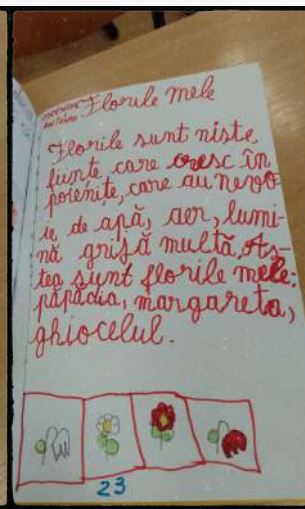 Florile mele
Florile sunt niște
ființe, care cresc în
poienițe, care au nevo-
ie de apă, aer, lumi-
nă grijă multă. As-
tea sunt florile mele:
păpădia, margareta,
ghiocelul.
23